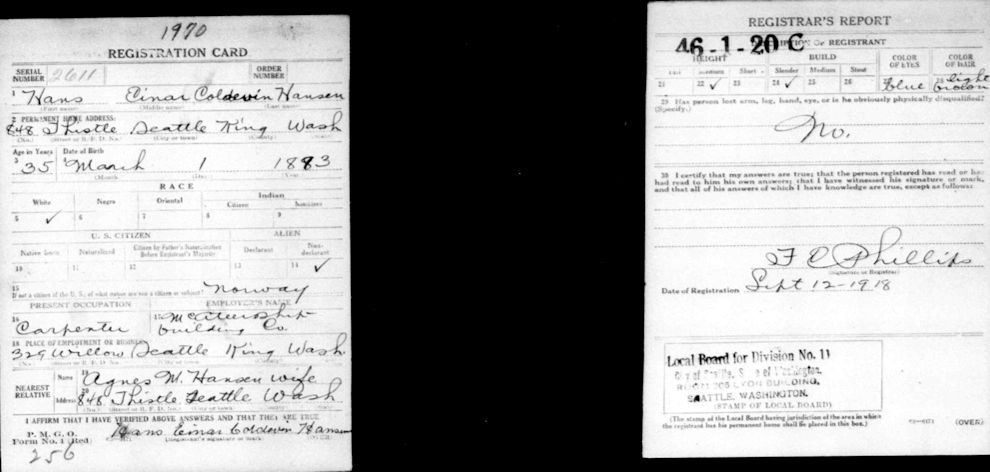 1970
REGISTRATION CARD
SERIAL NUMBER 2611 ORDER NUMBER
1 Hans Einar Coldevin Hansen
(First name) (Middle name) (Last name)
2 PERMANENT HOME ADDRESS:
848 Thistle Seattle King Wash
(No.) (Street or R. F. D. No.) (City or town) (County) (State)
Age in Years Date of Birth
3 35 4 March 1 1883
(Month) (Day) (Year)
RACE
White Negro Oriental Indian
Citizen Noncitizen
5 ✓ 6 7 8 9
U. S. CITIZEN ALIEN
Native Born Naturalized Citizen by Father's Naturalization Before Registrant's Majority Declarant Non-declarant
10 11 12 13 14 ✓
15 If not a citizen of the U. S., of what nation are you a citizen or subject? Norway
PRESENT OCCUPATION EMPLOYER'S NAME
16 Carpenter 17 Shipbuilding Co.
18 PLACE OF EMPLOYMENT OR BUSINESS
329 Willow Seattle King Wash
(No.) (Street or R. F. D. No.) (City or town) (County) (State)
NEAREST RELATIVE Name 19 Agnes M. Hansen wife
Address 20 848 Thistle Seattle Wash
(No.) (Street or R. F. D. No.) (City or town) (County) (State)
I AFFIRM THAT I HAVE VERIFIED ABOVE ANSWERS AND THAT THEY ARE TRUE
P. M. G. O.
Form No. 1 (Red) Hans Einar Coldevin Hansen
(Registrant's signature or mark) (OVER)
256
REGISTRAR'S REPORT
46-1-20 C
DESCRIPTION OF REGISTRANT
HEIGHT BUILD COLOR OF EYES COLOR OF HAIR
Tall Medium Short Slender Medium Stout
21 22 ✓ 23 24 ✓ 25 26 27 blue 28 light brown
29 Has person lost arm, leg, hand, eye, or is he obviously physically disqualified?
(Specify.)
No.
30 I certify that my answers are true; that the person registered has read or has
had read to him his own answers; that I have witnessed his signature or mark,
and that all of his answers of which I have knowledge are true, except as follows:
F C Phillips
(Signature of Registrar)
Date of Registration Sept 12-1918
Local Board for Division No. 11
City of Seattle, State of Washington,
LYON BUILDING,
SEATTLE, WASHINGTON.
(STAMP OF LOCAL BOARD)
(The stamp of the Local Board having jurisdiction of the area in which
the registrant has his permanent home shall be placed in this box.)
(OVER)